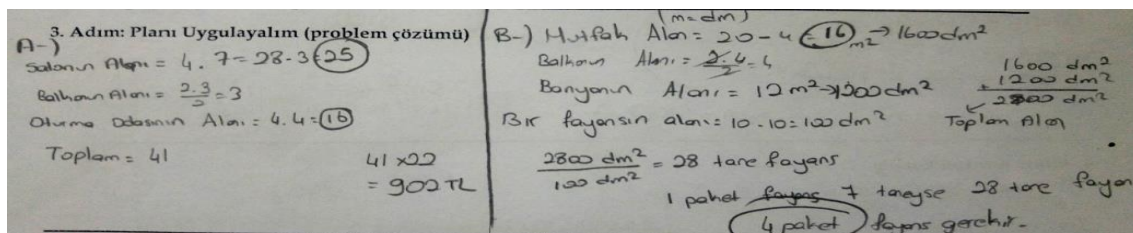 3. Adım: Planı Uygulayalım (problem çözümü)
A-)
Salonun Alanı = 4 . 7 = 28 - 3 = 25
Balkonun Alanı = 2.3/2 = 3
Oturma Odasının Alanı = 4.4 = 16
Toplam = 41
41 x 22
= 902 TL
(m = dm)
B-) Mutfak Alanı = 20 - 4 = 16 m² → 1600 dm²
Balkon Alanı = 2.4/2 = 4
Banyonun Alanı = 12 m² → 1200 dm²
1600 dm²
+ 1200 dm²
2800 dm²
Toplam Alan
Bir fayansın alanı = 10 . 10 = 100 dm²
2800 dm²/100 dm² = 28 tane fayans
1 paket fayans 7 taneyse 28 tane fayan
4 paket fayans gerekir.